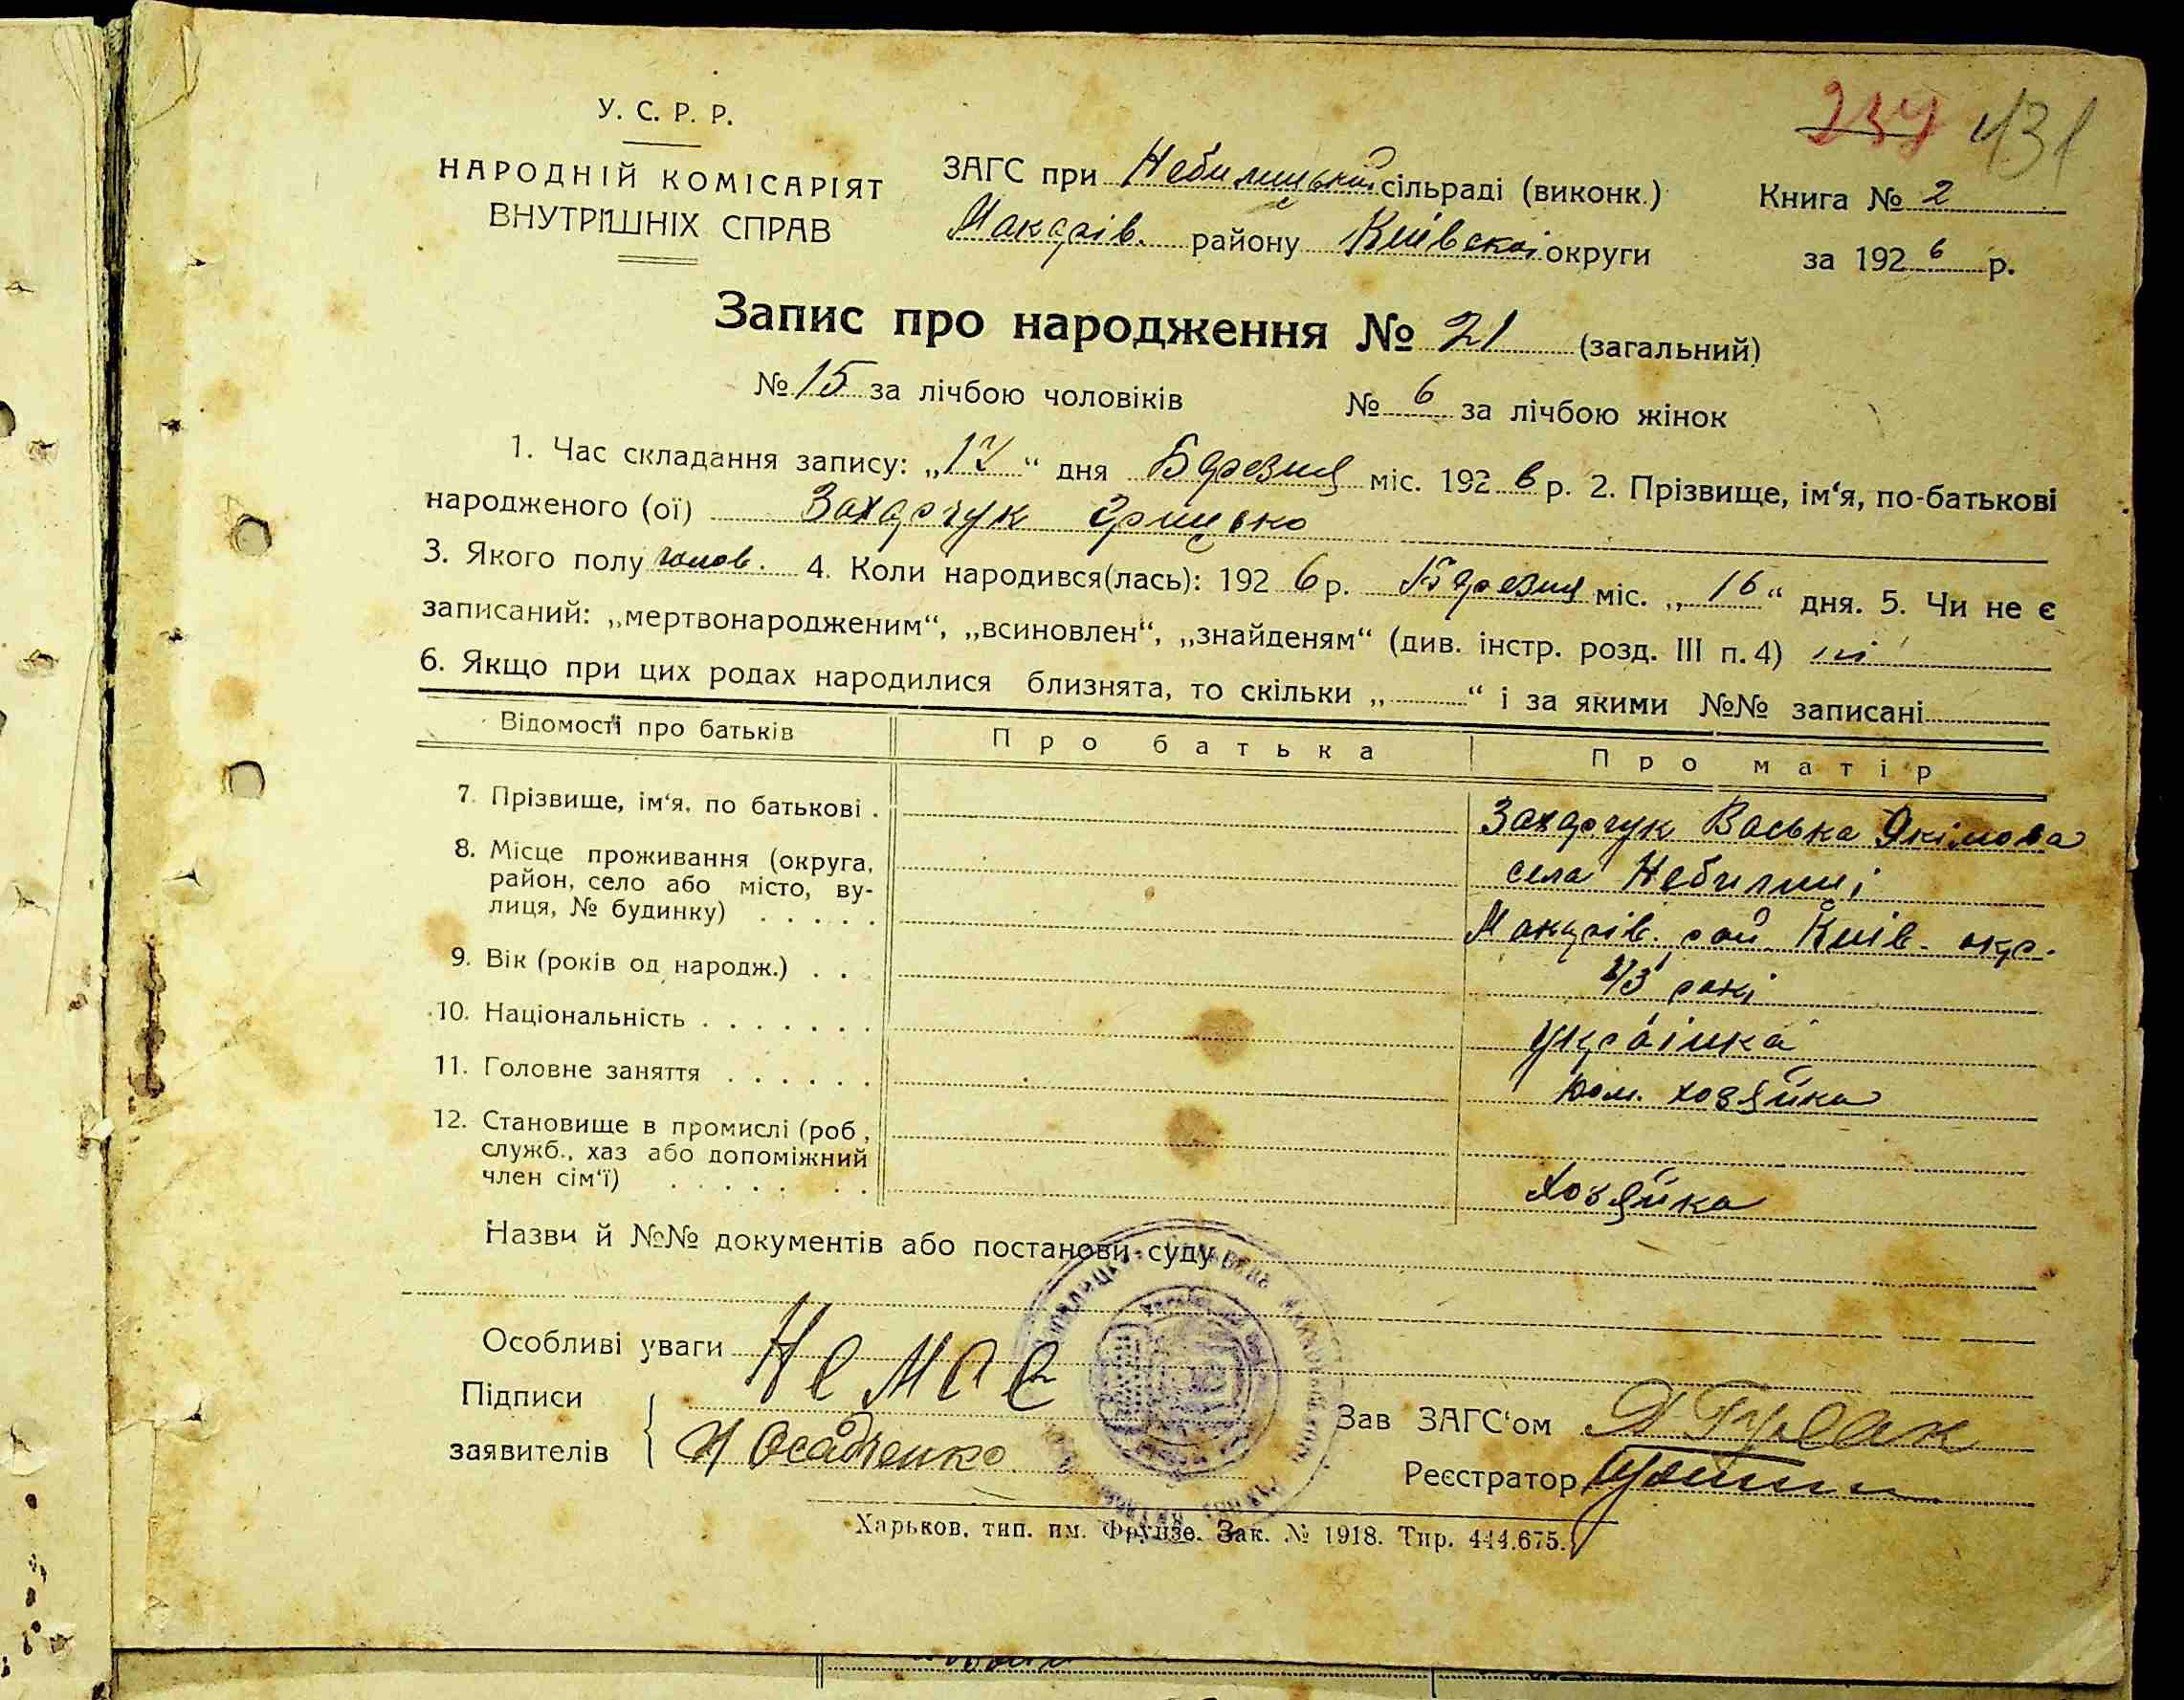 237 431
У. С. Р. Р.
НАРОДНІЙ КОМІСАРІЯТ
ВНУТРІШНІХ СПРАВ
ЗАГС при Небилицькій сільраді (виконк.)
Макарів. району Київскоі округи
Книга № 2
за 1926 р.
Запис про народження № 21 (загальний)
№ 15 за лічбою чоловіків № 6 за лічбою жінок
1. Час складання запису: „17“ дня Березня міс. 1926 р. 2. Прізвище, ім‘я, по-батькові
народженого (ої) Захарчук Грицько
3. Якого полу чолов. 4. Коли народився(лась): 1926 р. Березня міс. „16“ дня. 5. Чи не є
записаний: „мертвонародженим“, „всиновлен“, „знайденям“ (див. інстр. розд. III п. 4) ні
6. Якщо при цих родах народилися близнята, то скільки „ “ і за якими №№ записані
Відомості про батьків Про батька Про матір
7. Прізвище, ім‘я, по батькові . Захарчук Васька Якімова
8. Місце проживання (округа, села Небилиці
район, село або місто, ву-
лиця, № будинку) . . . . . Макарів. рай. Київ. окр.
9. Вік (років од народж.) . . 43 рокі
10. Національність . . . . . . . Українка
11. Головне заняття . . . . . . дом. хозяйка
12. Становище в промислі (роб,
служб., хаз або допоміжний
член сім‘ї) . . . . . . . Хозяйка
Назви й №№ документів або постанови суду
Особливі уваги Немає
Підписи
заявителів Осадченко
Зав ЗАГС‘ом
Реєстратор
Харьков, тип. им. Фрунзе. Зак. № 1918. Тир. 444.675.